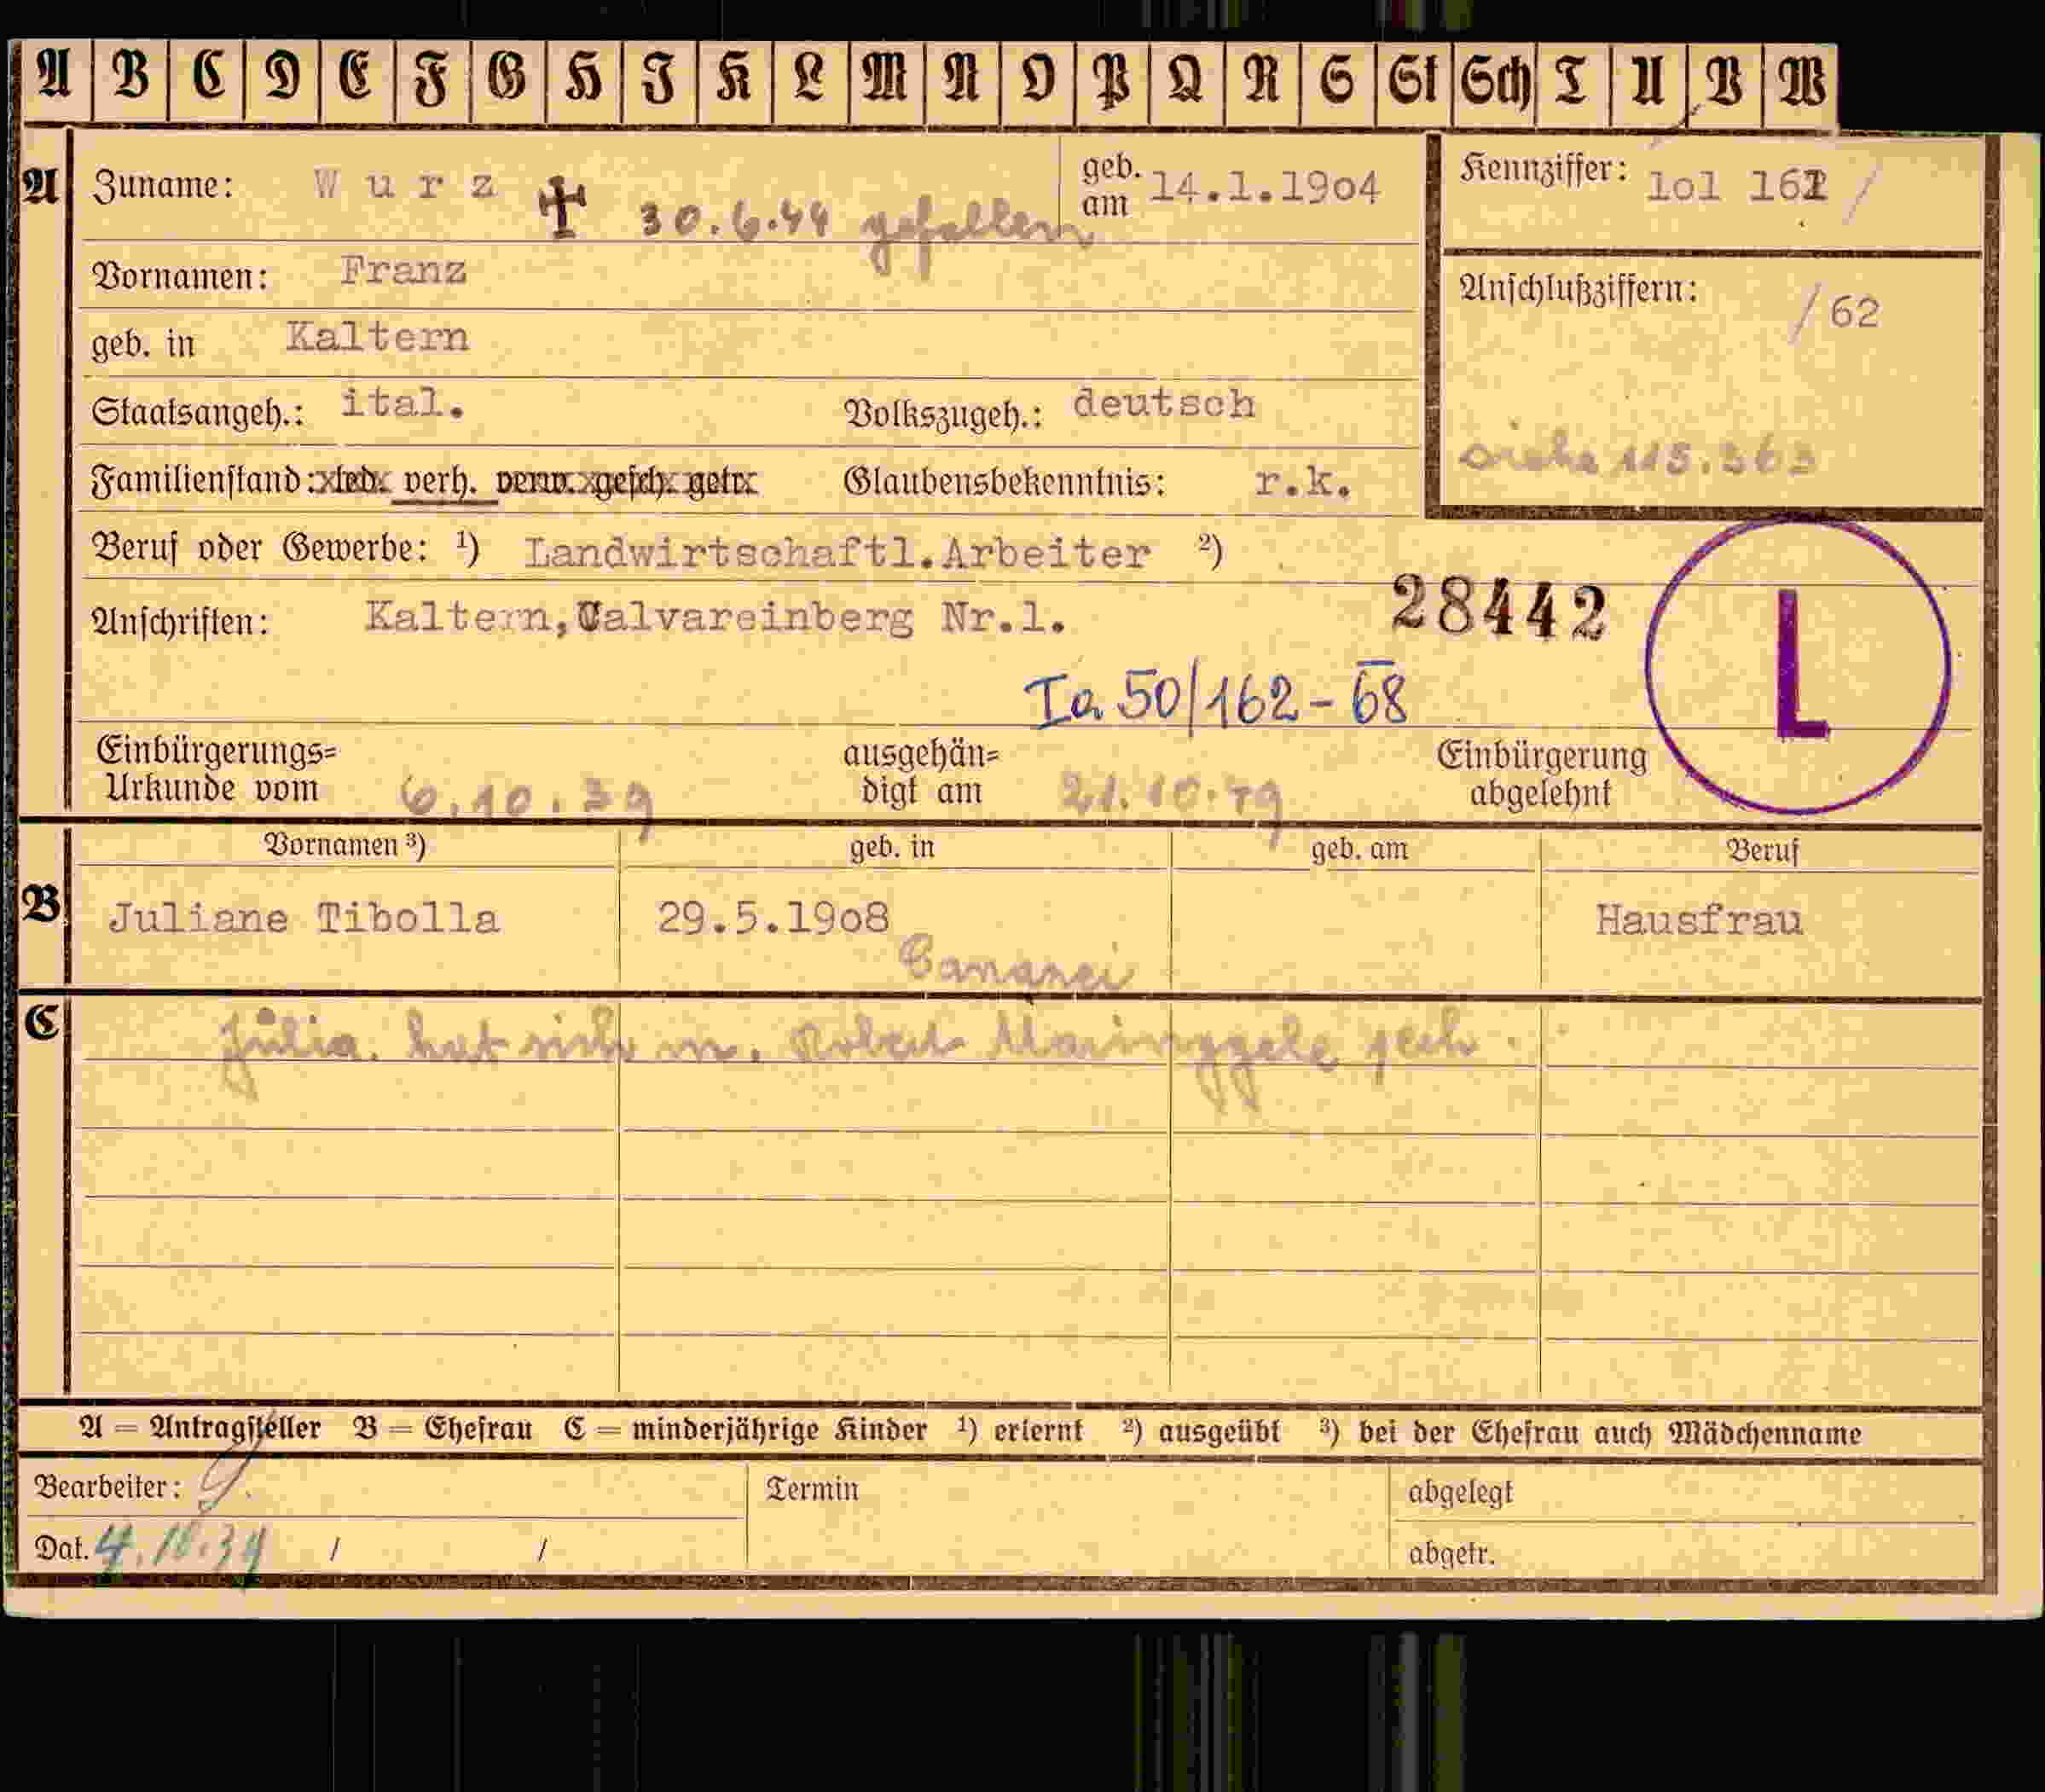 A B C D E F G H J K L M N O P Q R S St Sch T U V W
A Zuname: Wurz geb. am 14.1.1904 Kennziffer: 1o1 161 /
✝ 30.6.44 gefallen
Vornamen: Franz
Anschlußziffern: /62
geb. in Kaltern
Staatsangeh.: ital. Volkszugeh.: deutsch
siehe 115.363
Familienstand: led. verh. verw. gesch. getr. Glaubensbekenntnis: r.k.
Beruf oder Gewerbe: ¹) Landwirtschaftl.Arbeiter ²)
Anschriften: Kaltern,Calvareinberg Nr.1. 28442
L
Ia 50/162-68
Einbürgerungs= ausgehän= Einbürgerung
Urkunde vom 6.10.39 digt am 21.10.39 abgelehnt
Vornamen ³) geb. in geb. am Beruf
B Juliane Tibolla 29.5.19o8 Hausfrau
C Julia. hat sich m. Robert
A = Antragsteller B = Ehefrau C = minderjährige Kinder ¹) erlernt ²) ausgeübt ³) bei der Ehefrau auch Mädchenname
Bearbeiter: Termin abgelegt
Dat. 4.10.39 / / abgetr.